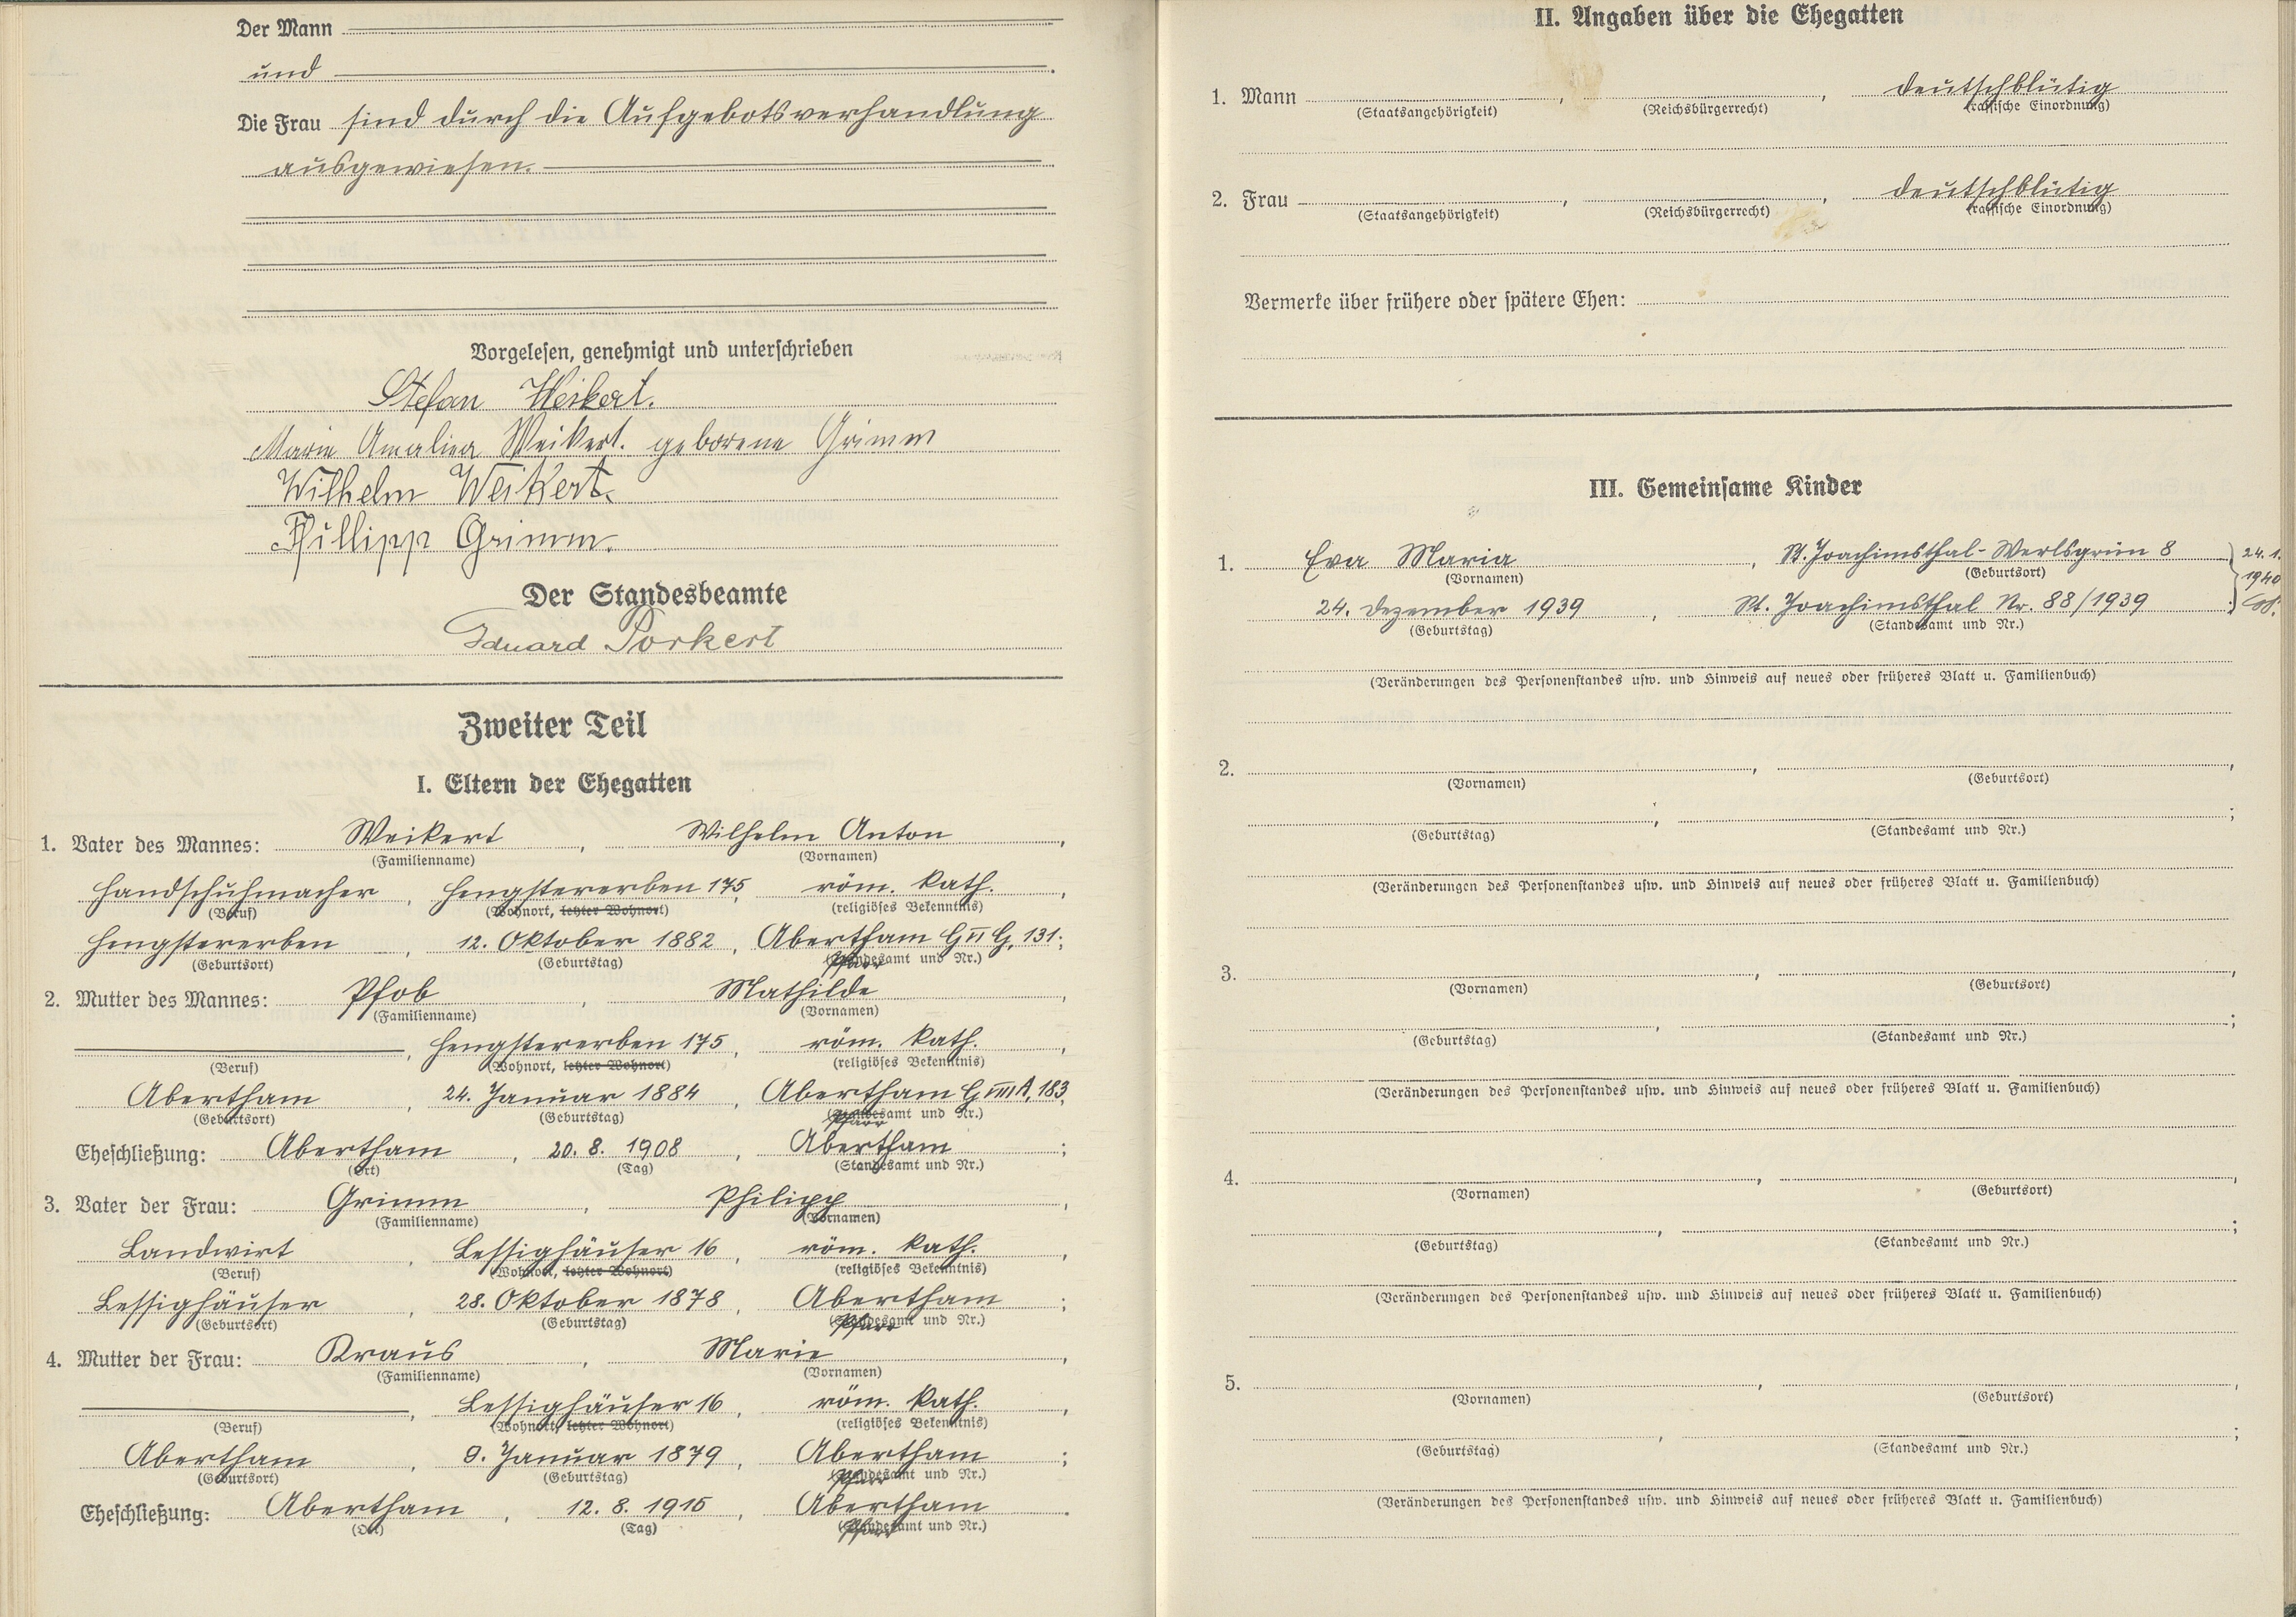 Der Mann
und
Die Frau sind durch die Aufgebotsverhandlung
ausgewiesen.
Vorgelesen, genehmigt und unterschrieben
Stefan Weikert.
Marie Amalia Weikert. geborene Grimm
Wilhelm Weikert.
Phillipp Grimm.
Der Standesbeamte
Eduard Porkert
Zweiter Teil
I. Eltern der Ehegatten
1. Vater des Mannes: Weikert, Wilhelm Anton,
(Familienname) (Vornamen)
Handschuhmacher, Hengstererben 175, röm. kath.,
(Beruf) (Wohnort, letzter Wohnort) (religiöses Bekenntnis)
Hengstererben, 12. Oktober 1882, Abertham G II G, 131;
(Geburtsort) (Geburtstag) (Pfarramt und Nr.)
2. Mutter des Mannes: Pfob, Mathilde,
(Familienname) (Vornamen)
, Hengstererben 175, röm. kath.,
(Beruf) (Wohnort, letzter Wohnort) (religiöses Bekenntnis)
Abertham, 24. Januar 1884, Abertham G A, 183
(Geburtsort) (Geburtstag) (Pfarramt und Nr.)
Eheschließung: Abertham, 20. 8. 1908, Abertham;
(Ort) (Tag) (Standesamt und Nr.)
3. Vater der Frau: Grimm, Philipp,
(Familienname) (Vornamen)
Landwirt, Lessighäuser 16, röm. kath.,
(Beruf) (Wohnort, letzter Wohnort) (religiöses Bekenntnis)
Lessighäuser, 28. Oktober 1878, Abertham;
(Geburtsort) (Geburtstag) (Pfarramt und Nr.)
4. Mutter der Frau: Kraus, Marie,
(Familienname) (Vornamen)
, Lessighäuser 16, röm. kath.,
(Beruf) (Wohnort, letzter Wohnort) (religiöses Bekenntnis)
Abertham, 9. Januar 1879, Abertham;
(Geburtsort) (Geburtstag) (Pfarramt und Nr.)
Eheschließung: Abertham, 12. 8. 1915, Abertham.
(Ort) (Tag) (Pfarramt und Nr.)
II. Angaben über die Ehegatten
1. Mann , , deutschblütig
(Staatsangehörigkeit) (Reichsbürgerrecht) (rassische Einordnung)
2. Frau , , deutschblütig
(Staatsangehörigkeit) (Reichsbürgerrecht) (rassische Einordnung)
Vermerke über frühere oder spätere Ehen:
III. Gemeinsame Kinder
1. Eva Maria, St. Joachimsthal-Werlsgrün 8 24. 1.
(Vornamen) (Geburtsort) 1940
24. Dezember 1939, St. Joachimsthal Nr. 88/1939;
(Geburtstag) (Standesamt und Nr.)
(Veränderungen des Personenstandes usw. und Hinweis auf neues oder früheres Blatt u. Familienbuch)
2. , ,
(Vornamen) (Geburtsort)
, ;
(Geburtstag) (Standesamt und Nr.)
(Veränderungen des Personenstandes usw. und Hinweis auf neues oder früheres Blatt u. Familienbuch)
3. , ,
(Vornamen) (Geburtsort)
, ;
(Geburtstag) (Standesamt und Nr.)
(Veränderungen des Personenstandes usw. und Hinweis auf neues oder früheres Blatt u. Familienbuch)
4. , ,
(Vornamen) (Geburtsort)
, ;
(Geburtstag) (Standesamt und Nr.)
(Veränderungen des Personenstandes usw. und Hinweis auf neues oder früheres Blatt u. Familienbuch)
5. , ,
(Vornamen) (Geburtsort)
, ;
(Geburtstag) (Standesamt und Nr.)
(Veränderungen des Personenstandes usw. und Hinweis auf neues oder früheres Blatt u. Familienbuch)